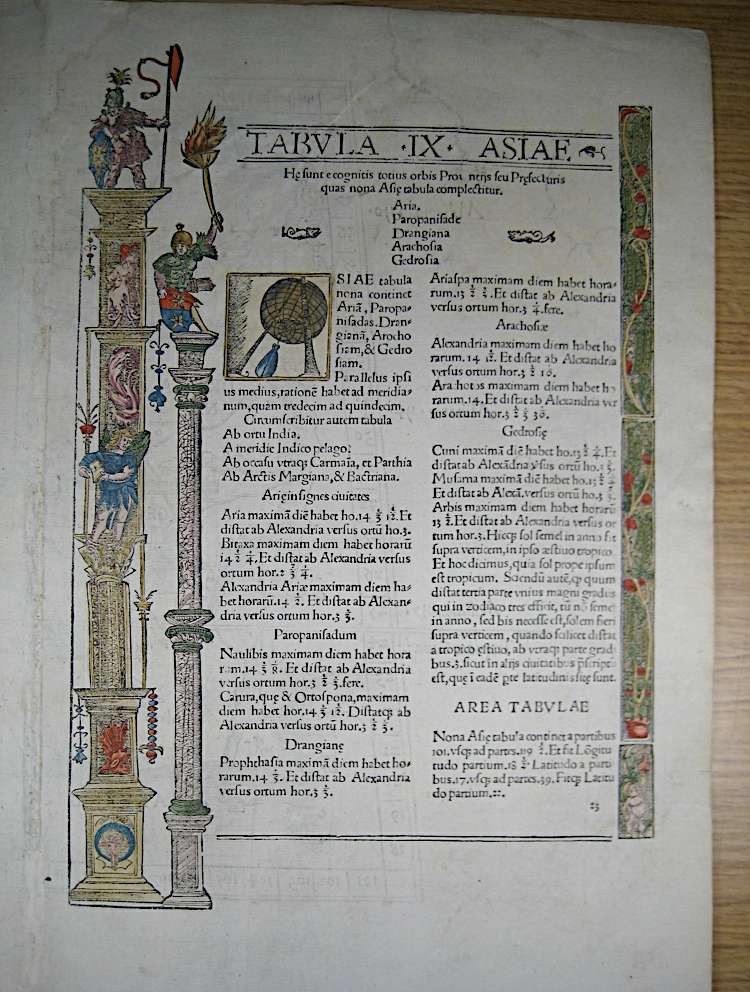 TABVLA ·IX· ASIAE
Hę sunt e cognitis totius orbis Prouincijs seu Pręfecturis
quas nona Asię tabula complectitur.
Aria.
Paropanisade
Drangiana
Arachosia
Gedrosia
SIAE tabula
nona continet
Ariā, Paropa-
nisadas. Dran-
gianā, Arocho
siam, & Gedro
siam.
Parallelus ipsi
us medius, rationē habet ad meridia-
num, quàm tredecim ad quindecim.
Circumscribitur autem tabula
Ab ortu India.
A meridie Indico pelago.
Ab occasu vtraq; Carmaīa, et Parthia
Ab Arctis Margiana, & Bactriana.
Arię insignes ciuitates
Aria maximā diē habet ho. 14 ⅓ 1/12. Et
distat ab Alexandria versus ortū ho. 3.
Bitaxa maximam diem habet horarū
14 ½ ¼. Et distat ab Alexandria versus
ortum hor. 2 ⅔ ¼.
Alexandria Arię maximam diem ha-
bet horarū. 14 ½. Et distat ab Alexan-
dria versus ortum hor. 3 ⅓.
Paropanisadum
Naulibis maximam diem habet hora
rum. 14 ⅓ ⅛. Et distat ab Alexandria
versus ortum hor. 3 ½ ⅓. fere.
Carura, quę & Ortospona, maximam
diem habet hor. 14 ⅓ 1/12. Distatq; ab
Alexandria versus ortū hor. 3 ½ ⅓.
Drangianę
Prophthasia maximā diem habet ho-
rarum. 14 ⅓. Et distat ab Alexandria
versus ortum hor. 3 ⅓.
Ariaspa maximam diem habet hora-
rum. 13 ½ ¼. Et distat ab Alexandria
versus ortum hor. 3 ¼. fere.
Arachosiæ
Alexandria maximam diem habet ho
rarum. 14 1/12. Et distat ab Alexandria
versus ortum hor. 3 ½ 1/10.
Arachotos maximam diem habet ho
rarum. 14. Et distat ab Alexandria ver
sus ortum hor. 3 ½ ⅓ 1/30.
Gedrosię
Cuni maximā diē habet ho. 13 ½ ¼. Et
distat ab Alexādria ṽsus ortū ho.
Musarna maximā diē habet ho. 13 ½ ¼
Et distat ab Alexā. versus ortū ho. 3
Arbis maximam diem habet horarū
13 ½. Et distat ab Alexandria versus or
tum hor. 3. Hicq; sol semel in anno fit
supra verticem, in ipso æstiuo tropico.
Et hoc dicimus, quia sol prope ipsum
est tropicum. Sciendū autē, q quum
distat tertia parte vnius magni gradus
qui in zodiaco tres efficit, tū nō semel
in anno, sed bis necesse est, solem fieri
supra verticem, quando scilicet distat
a tropico estiuo, ab vtraq; parte grad
bus. 3. sicut in alijs ciuitatibus pscriptū
est, quę i eadē pte latitudinis sitę sunt.
AREA TABVLAE
Nona Asię tabula continet a partibus
101. vsq; ad partes. 119 ½. Et fit Lōgitu
tudo partium. 18 ½. Latitudo a parti
bus. 17. vsq; ad partes. 39. Fitq; Latitu
do partium. 22.
25